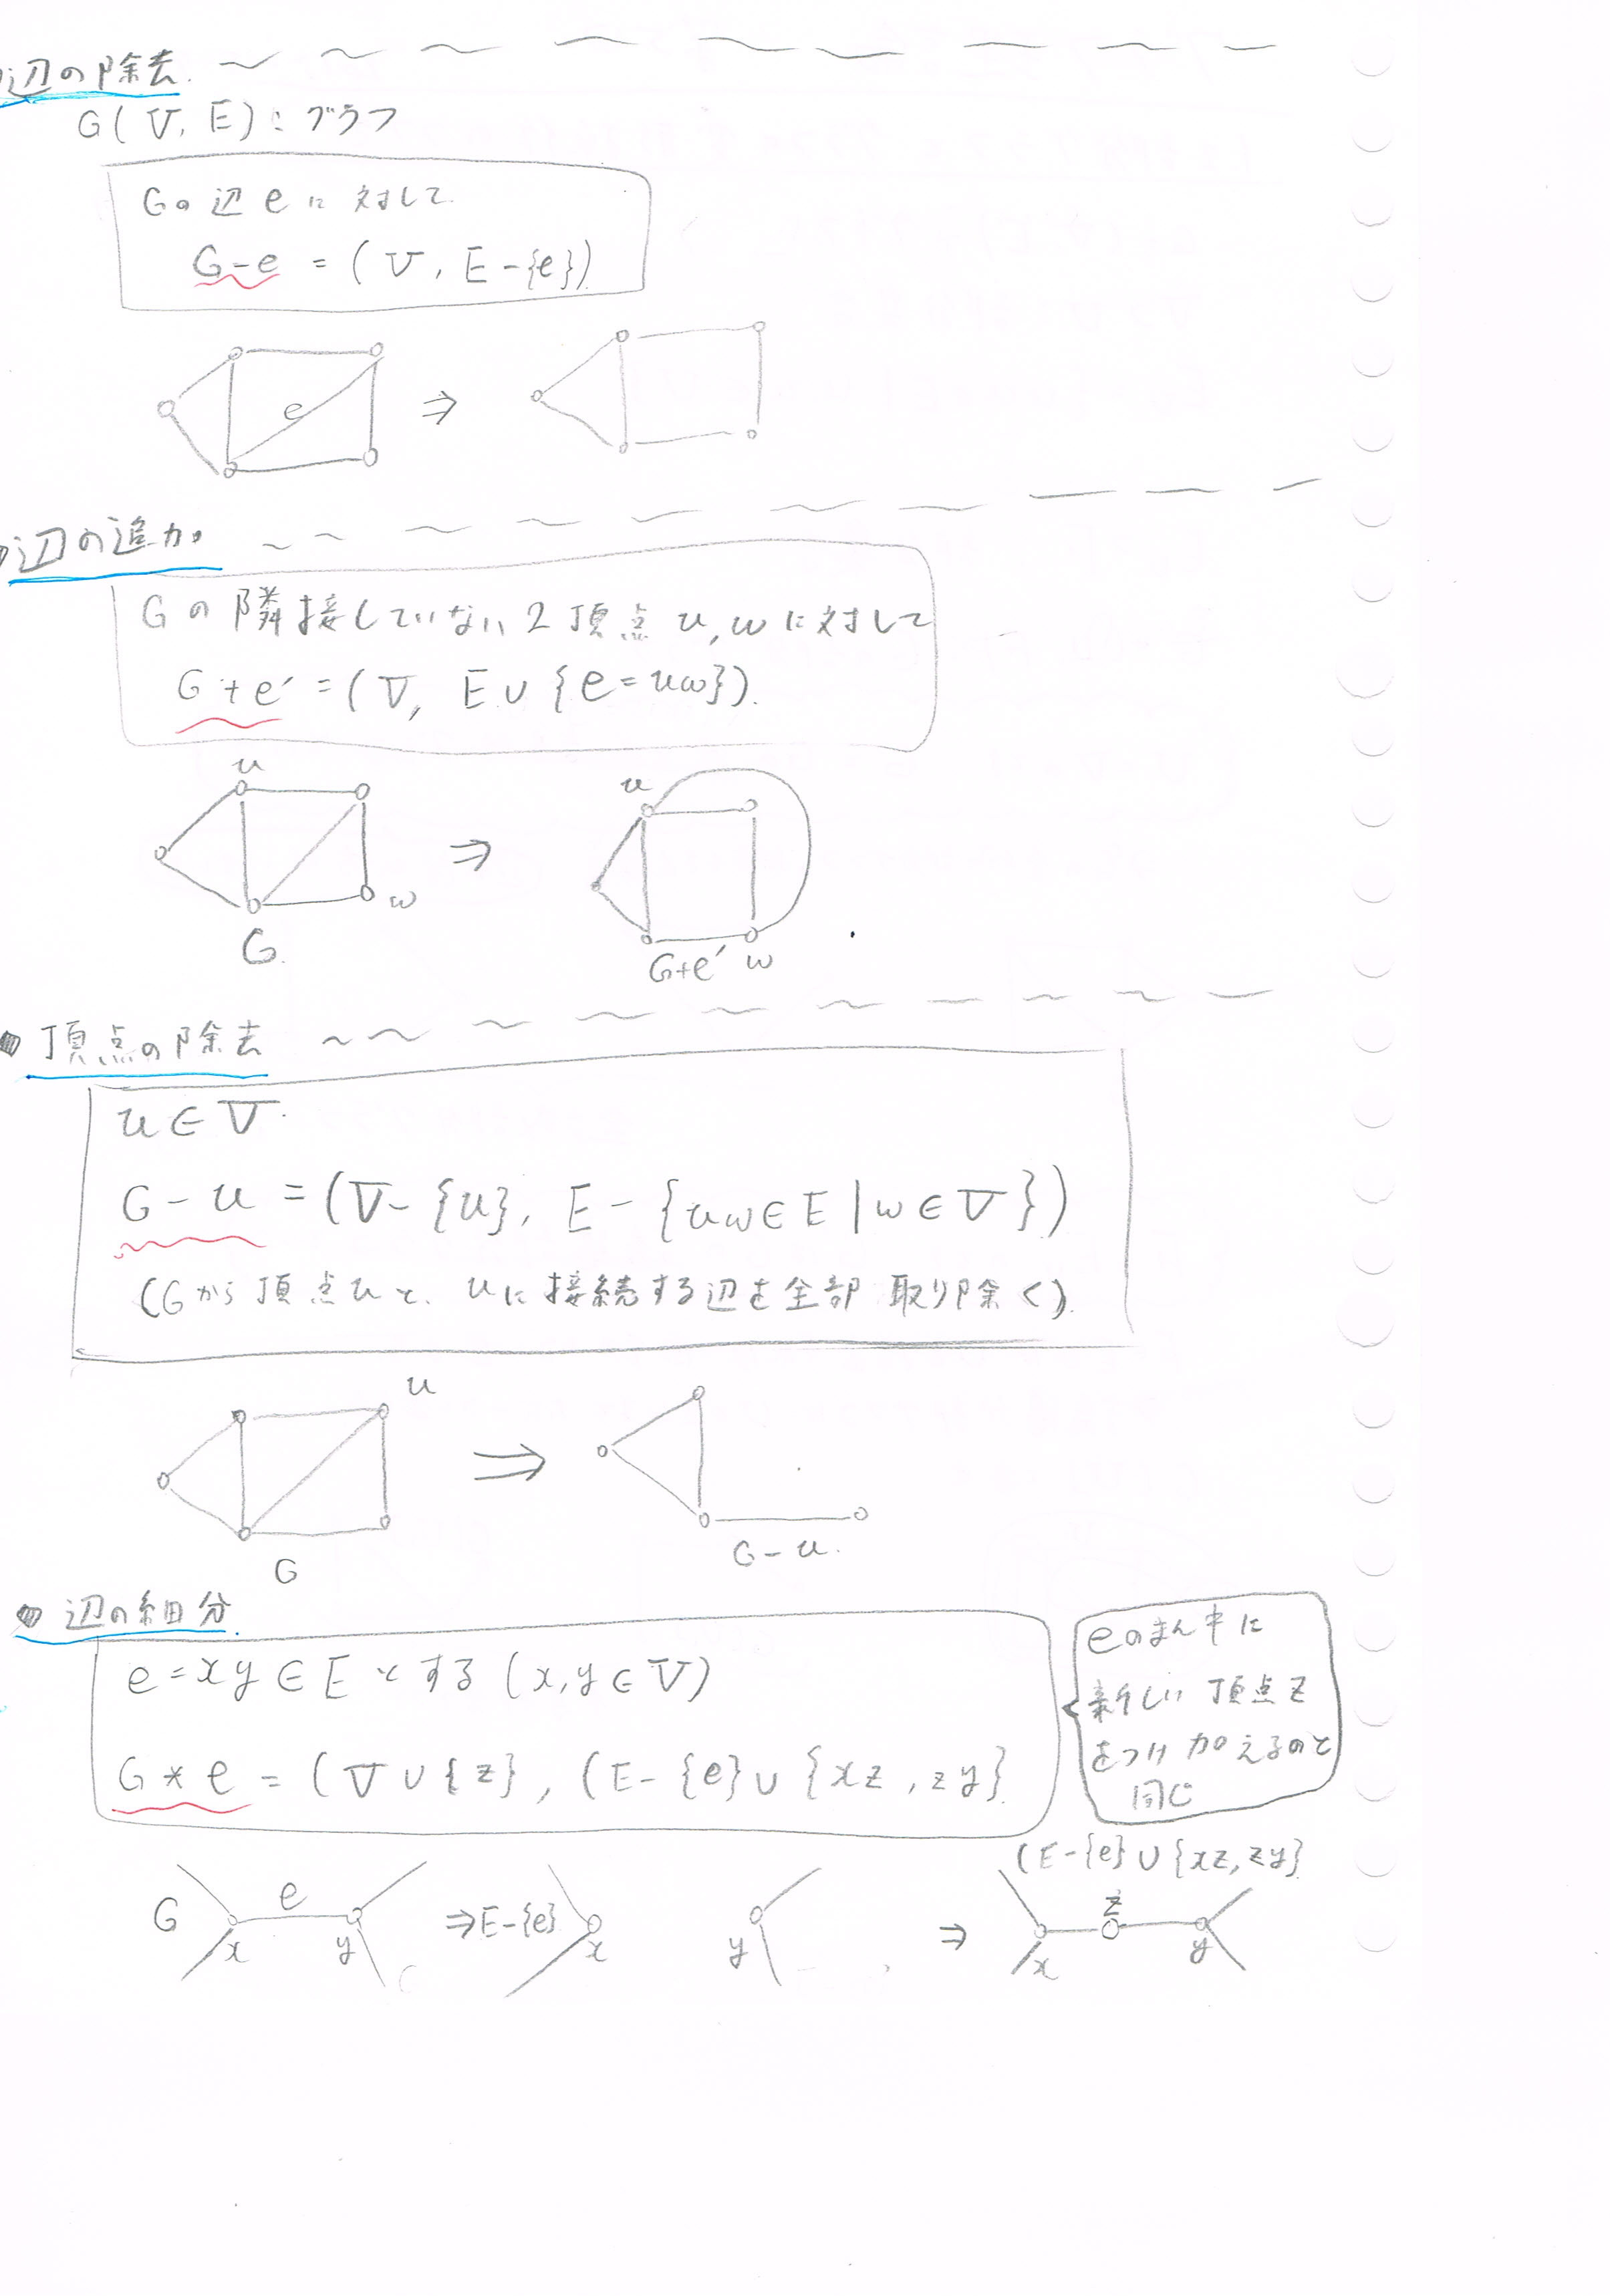 辺の除去
G(V, E):グラフ
Gの辺eに対して
G-e = (V, E-{e})
e ⇒
辺の追加
Gの隣接していない2頂点u,wに対して
G+e' = (V, E∪{e=uw}).
u u
⇒
w
G. G+e' w
頂点の除去
u∈V
G-u = (V-{u}, E-{uw∈E|w∈V})
(Gから頂点uと、uに接続する辺を全部取り除く).
u
⇒
G G-u.
辺の細分.
e=xy∈Eとする (x,y∈V)
G*e = (V∪{z}, (E-{e}∪{xz, zy}
eのまん中に
新しい頂点z
をつけ加えるのと
同じ
(E-{e}∪{xz, zy}
G e ⇒E-{e} ⇒ z
x y x y x y